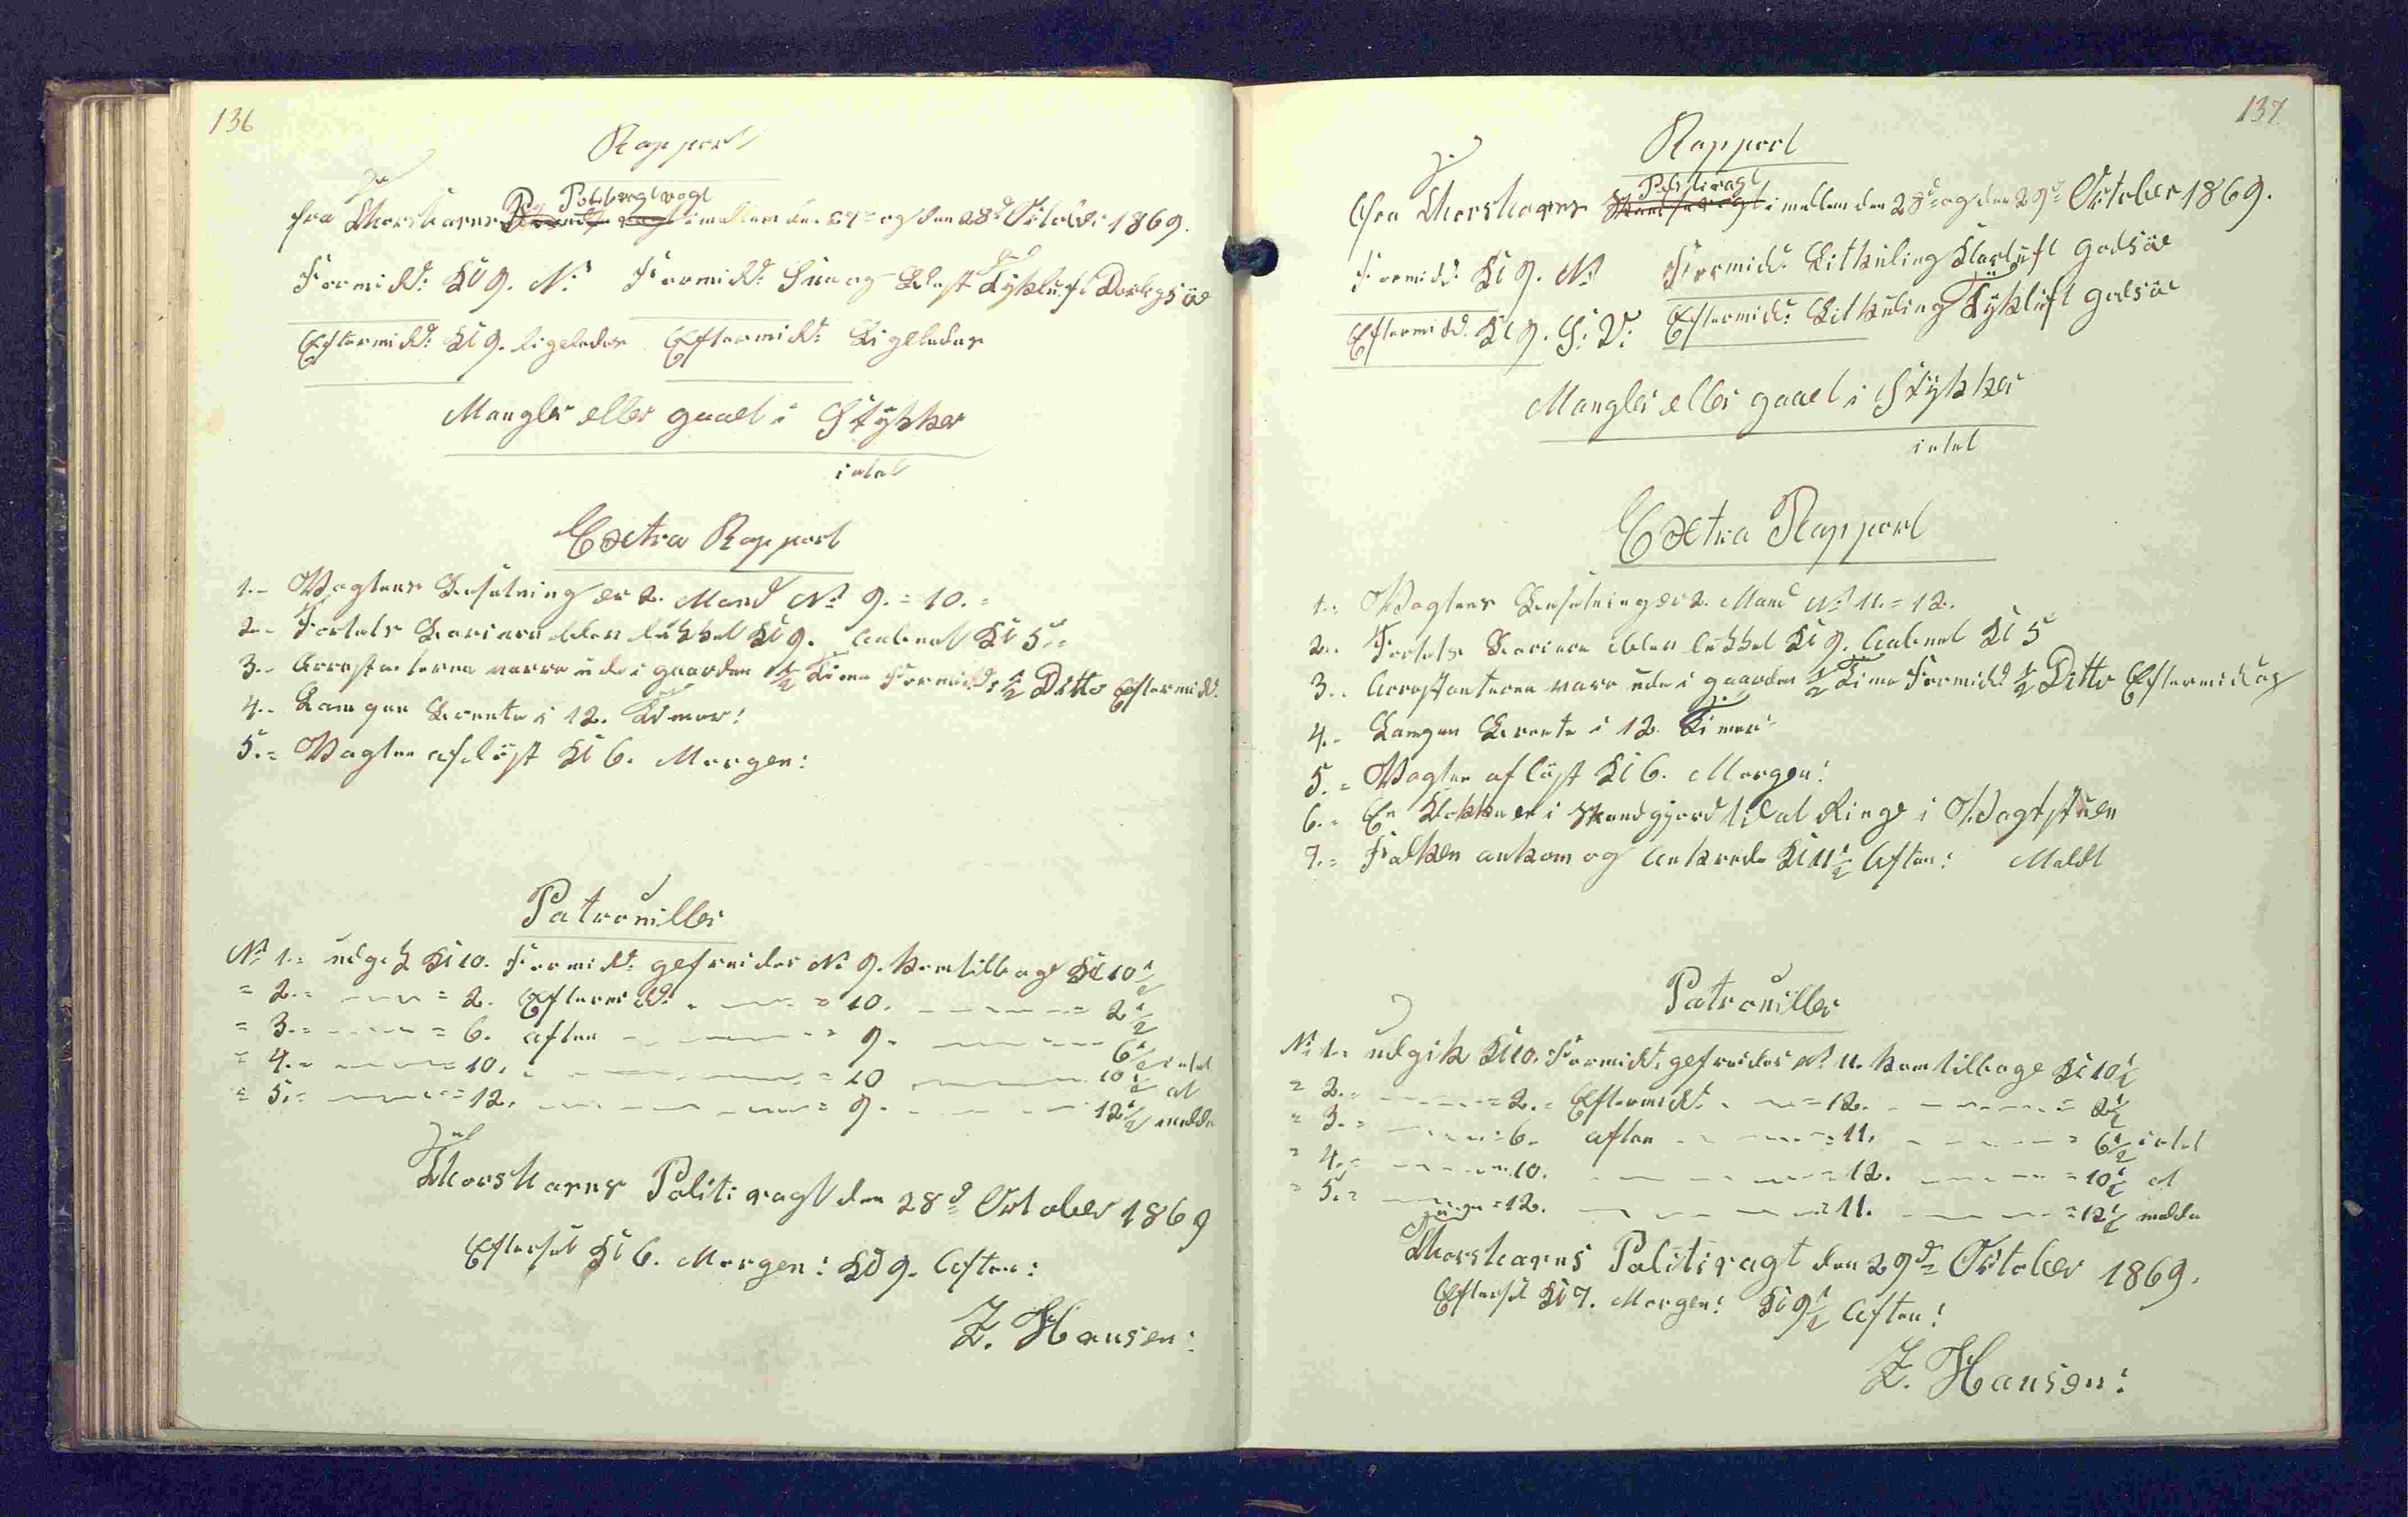 136
Rapport
Politivagt
fra Thorshavns Skandsevagt imellem den 27de og den 28d October 1869.
Formidd: Kl 9. N: Formidd: Snee og Blæst Tyk luft Daarlig Söe
Eftermidd: Kl 9. ligeledes Eftermidd: Ligeledes
Mangler eller gaaet i Stykker
intet
Extra Rapport
1.- Vagtens Besætning er 2. Mand No 9. = 10.=
2.- Fortets Barriere blev lukket Kl 9. Aabnet Kl 5.=
3.- Arrestanterne varre ude i gaarden 1/2 Time Formidd: 1/2 Ditto Eftermidd.
4.- Lampen Brænte i 12. Timer!
5.= Vagten aflöst Kl 6. Morgen:
Patrouiller
No 1.= udgik Kl 10. Formidd: gefreider No 9. kom tilbage Kl 10 1/2
= 2.= = 2. Eftermidd: = 10. = 2 1/2
= 3.= = 6. aften = 9. 6 1/2 intet
= 4.= = 10. = 10 10 1/2 at
= 5.= = 12. = 9. 12 1/2 melde
Thorshavns Politivagt den 28d October 1869
Efterset Kl 6. Morgen: Kl 9. Aften:
Z. Hansen:
137
Rapport
Politivagt
fra Thorshavns Skandsevagt imellem den 28d og den 29d October 1869.
Formidd: Kl 9. N: Formidd: Litkuling Klarluft god Söe
Eftermidd: Kl 9. S:V: Eftermidd: Litkuling Tykluft god Söe
Mangler eller gaaet i Stykker
intet
Extra Rapport
1.- Vagtens Besætning er 2. Mand No 11. = 12.
2.- Fortets Bariere blev lukket Kl 9. Aabnet Kl 5
3.- Arrestanterne vare ude i gaarden 1/2 Time Formidd: 1/2 Ditto Eftermiddag
4.- Lampen Brænte i 12. Timer
5.= Vagten aflöst Kl 6. Morgen!
6.= En Klokke er i Stand gjord til at Ringe i Vagtstuen
7.= Falken ankom og Ankrede Kl 11 1/2 Aften! Meldt
Patrouiller
No 1.= udgik Kl 10. Formidd: gefreider No 11. kom tilbage Kl 10 1/2
= 2.= = 2.= Eftermidd: = 12. = 2 1/2
= 3.= = 6. aften = 11. = 6 1/2 intet
= 4.= 10. = 12. = 10 1/2 at
= 5.= = 12. = 11. = 12 1/2 melde
Thorshavns Politivagt den 29de October 1869.
Efterset Kl 7. Morgen! Kl 9 1/2 Aften!
Z. Hansen: